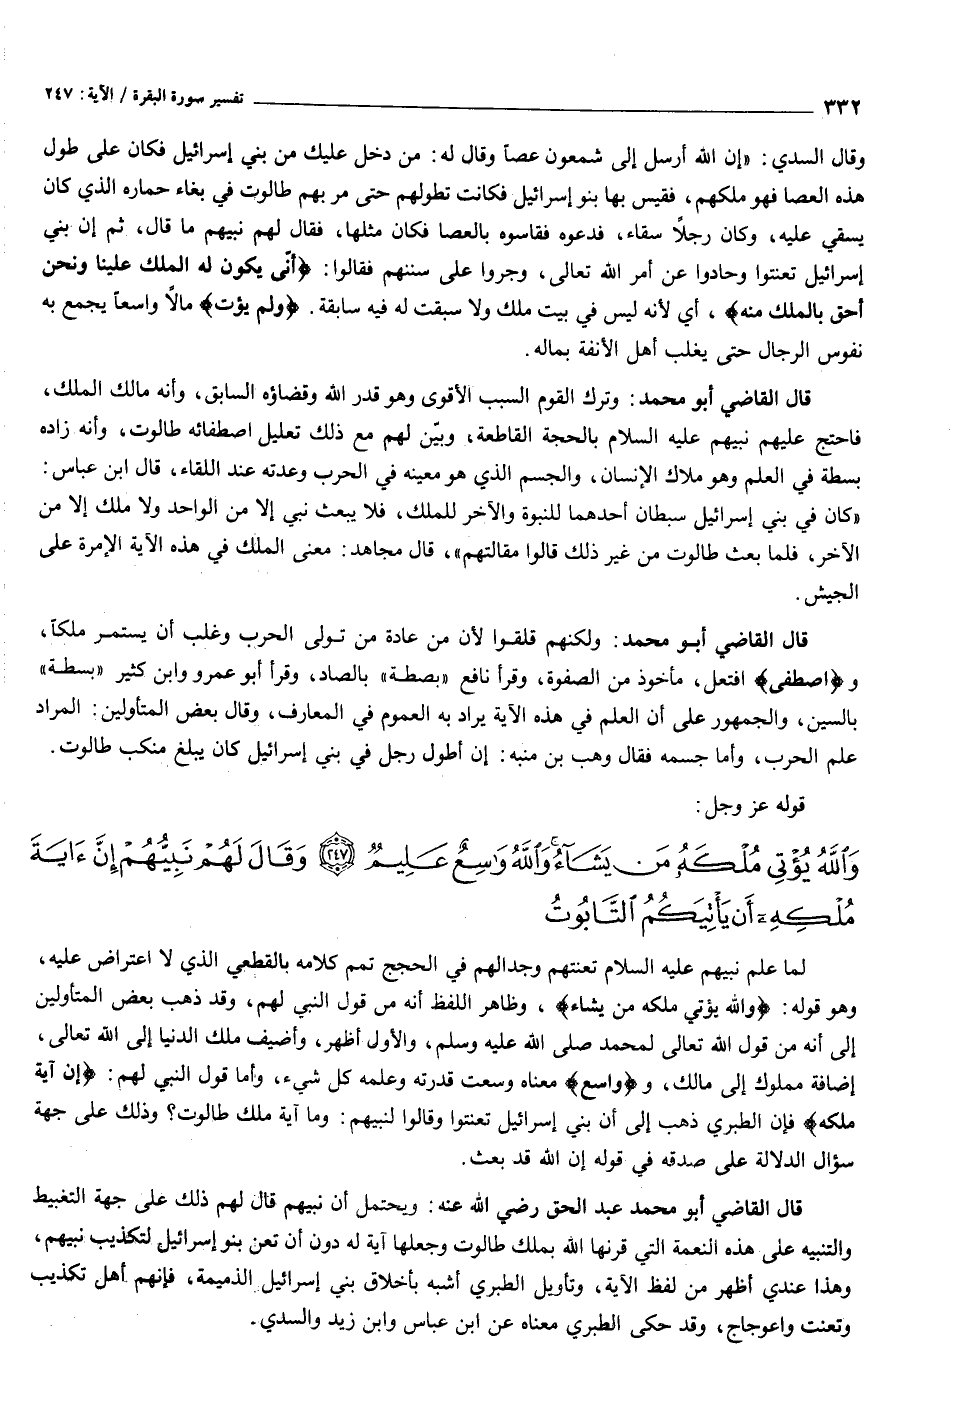 ٣٣٢ ــــــ تفسير سورة البقرة / الآية: ٢٤٧
وقال السدي: «إن الله أرسل إلى شمعون عصاً وقال له: من دخل عليك من بني إسرائيل فكان على طول
هذه العصا فهو ملكهم، فقيس بها بنو إسرائيل فكانت تطولهم حتى مر بهم طالوت في بغاء حماره الذي كان
يسقي عليه، وكان رجلاً سقاء، فدعوه فقاسوه بالعصا فكان مثلها، فقال لهم نبيهم ما قال، ثم إن بني
إسرائيل تعنتوا وحادوا عن أمر الله تعالى، وجروا على سننهم فقالوا: ﴿أنّى يكون له الملك علينا ونحن
أحق بالملك منه﴾ ، أي لأنه ليس في بيت ملك ولا سبقت له فيه سابقة. ﴿ولم يؤت﴾ مالاً واسعاً يجمع به
نفوس الرجال حتى يغلب أهل الأنفة بماله.
قال القاضي أبو محمد: وترك القوم السبب الأقوى وهو قدر الله وقضاؤه السابق، وأنه مالك الملك،
فاحتج عليهم نبيهم عليه السلام بالحجة القاطعة، وبيّن لهم مع ذلك تعليل اصطفائه طالوت، وأنه زاده
بسطة في العلم وهو ملاك الإنسان، والجسم الذي هو معينه في الحرب وعدته عند اللقاء، قال ابن عباس:
«كان في بني إسرائيل سبطان أحدهما للنبوة والآخر للملك، فلا يبعث نبي إلا من الواحد ولا ملك إلا من
الآخر، فلما بعث طالوت من غير ذلك قالوا مقالتهم»، قال مجاهد: معنى الملك في هذه الآية الإمرة على
الجيش.
قال القاضي أبو محمد: ولكنهم قلقوا لأن من عادة من تولى الحرب وغلب أن يستمر ملكاً،
و﴿اصطفى﴾ افتعل، مأخوذ من الصفوة، وقرأ نافع «بصطة» بالصاد، وقرأ أبو عمرو وابن كثير «بسطة»
بالسين، والجمهور على أن العلم في هذه الآية يراد به العموم في المعارف، وقال بعض المتأولين: المراد
علم الحرب، وأما جسمه فقال وهب بن منبه: إن أطول رجل في بني إسرائيل كان يبلغ منكب طالوت.
قوله عز وجل:
وَٱللَّهُ يُؤْتِي مُلْكَهُۥ مَن يَشَآءُۚ وَٱللَّهُ وَٰسِعٌ عَلِيمٌ ﴿٢٤٧﴾ وَقَالَ لَهُمْ نَبِيُّهُمْ إِنَّ ءَايَةَ
مُلْكِهِۦٓ أَن يَأْتِيَكُمُ ٱلتَّابُوتُ
لما علم نبيهم عليه السلام تعنتهم وجدالهم في الحجج تمم كلامه بالقطعي الذي لا اعتراض عليه،
وهو قوله: ﴿والله يؤتي ملكه من يشاء﴾ ، وظاهر اللفظ أنه من قول النبي لهم، وقد ذهب بعض المتأولين
إلى أنه من قول الله تعالى لمحمد صلى الله عليه وسلم، والأول أظهر، وأضيف ملك الدنيا إلى الله تعالى،
إضافة مملوك إلى مالك، و﴿واسع﴾ معناه وسعت قدرته وعلمه كل شيء، وأما قول النبي لهم: ﴿إن آية
ملكه﴾ فإن الطبري ذهب إلى أن بني إسرائيل تعنتوا وقالوا لنبيهم: وما آية ملك طالوت؟ وذلك على جهة
سؤال الدلالة على صدقه في قوله إن الله قد بعث.
قال القاضي أبو محمد عبد الحق رضي الله عنه: ويحتمل أن نبيهم قال لهم ذلك على جهة التغبيط
والتنبيه على هذه النعمة التي قرنها الله بملك طالوت وجعلها آية له دون أن تعن بنو إسرائيل لتكذيب نبيهم،
وهذا عندي أظهر من لفظ الآية، وتأويل الطبري أشبه بأخلاق بني إسرائيل الذميمة، فإنهم أهل تكذيب
وتعنت واعوجاج، وقد حكى الطبري معناه عن ابن عباس وابن زيد والسدي.